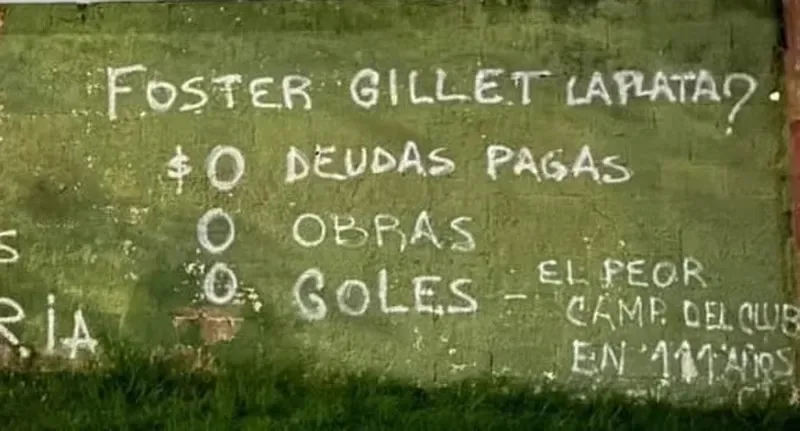 FOSTER GILLET LA PLATA?
$0 DEUDAS PAGAS
0 OBRAS
0 GOLES - EL PEOR
CAMP. DEL CLUB
EN 111 AÑOS
S
RIA